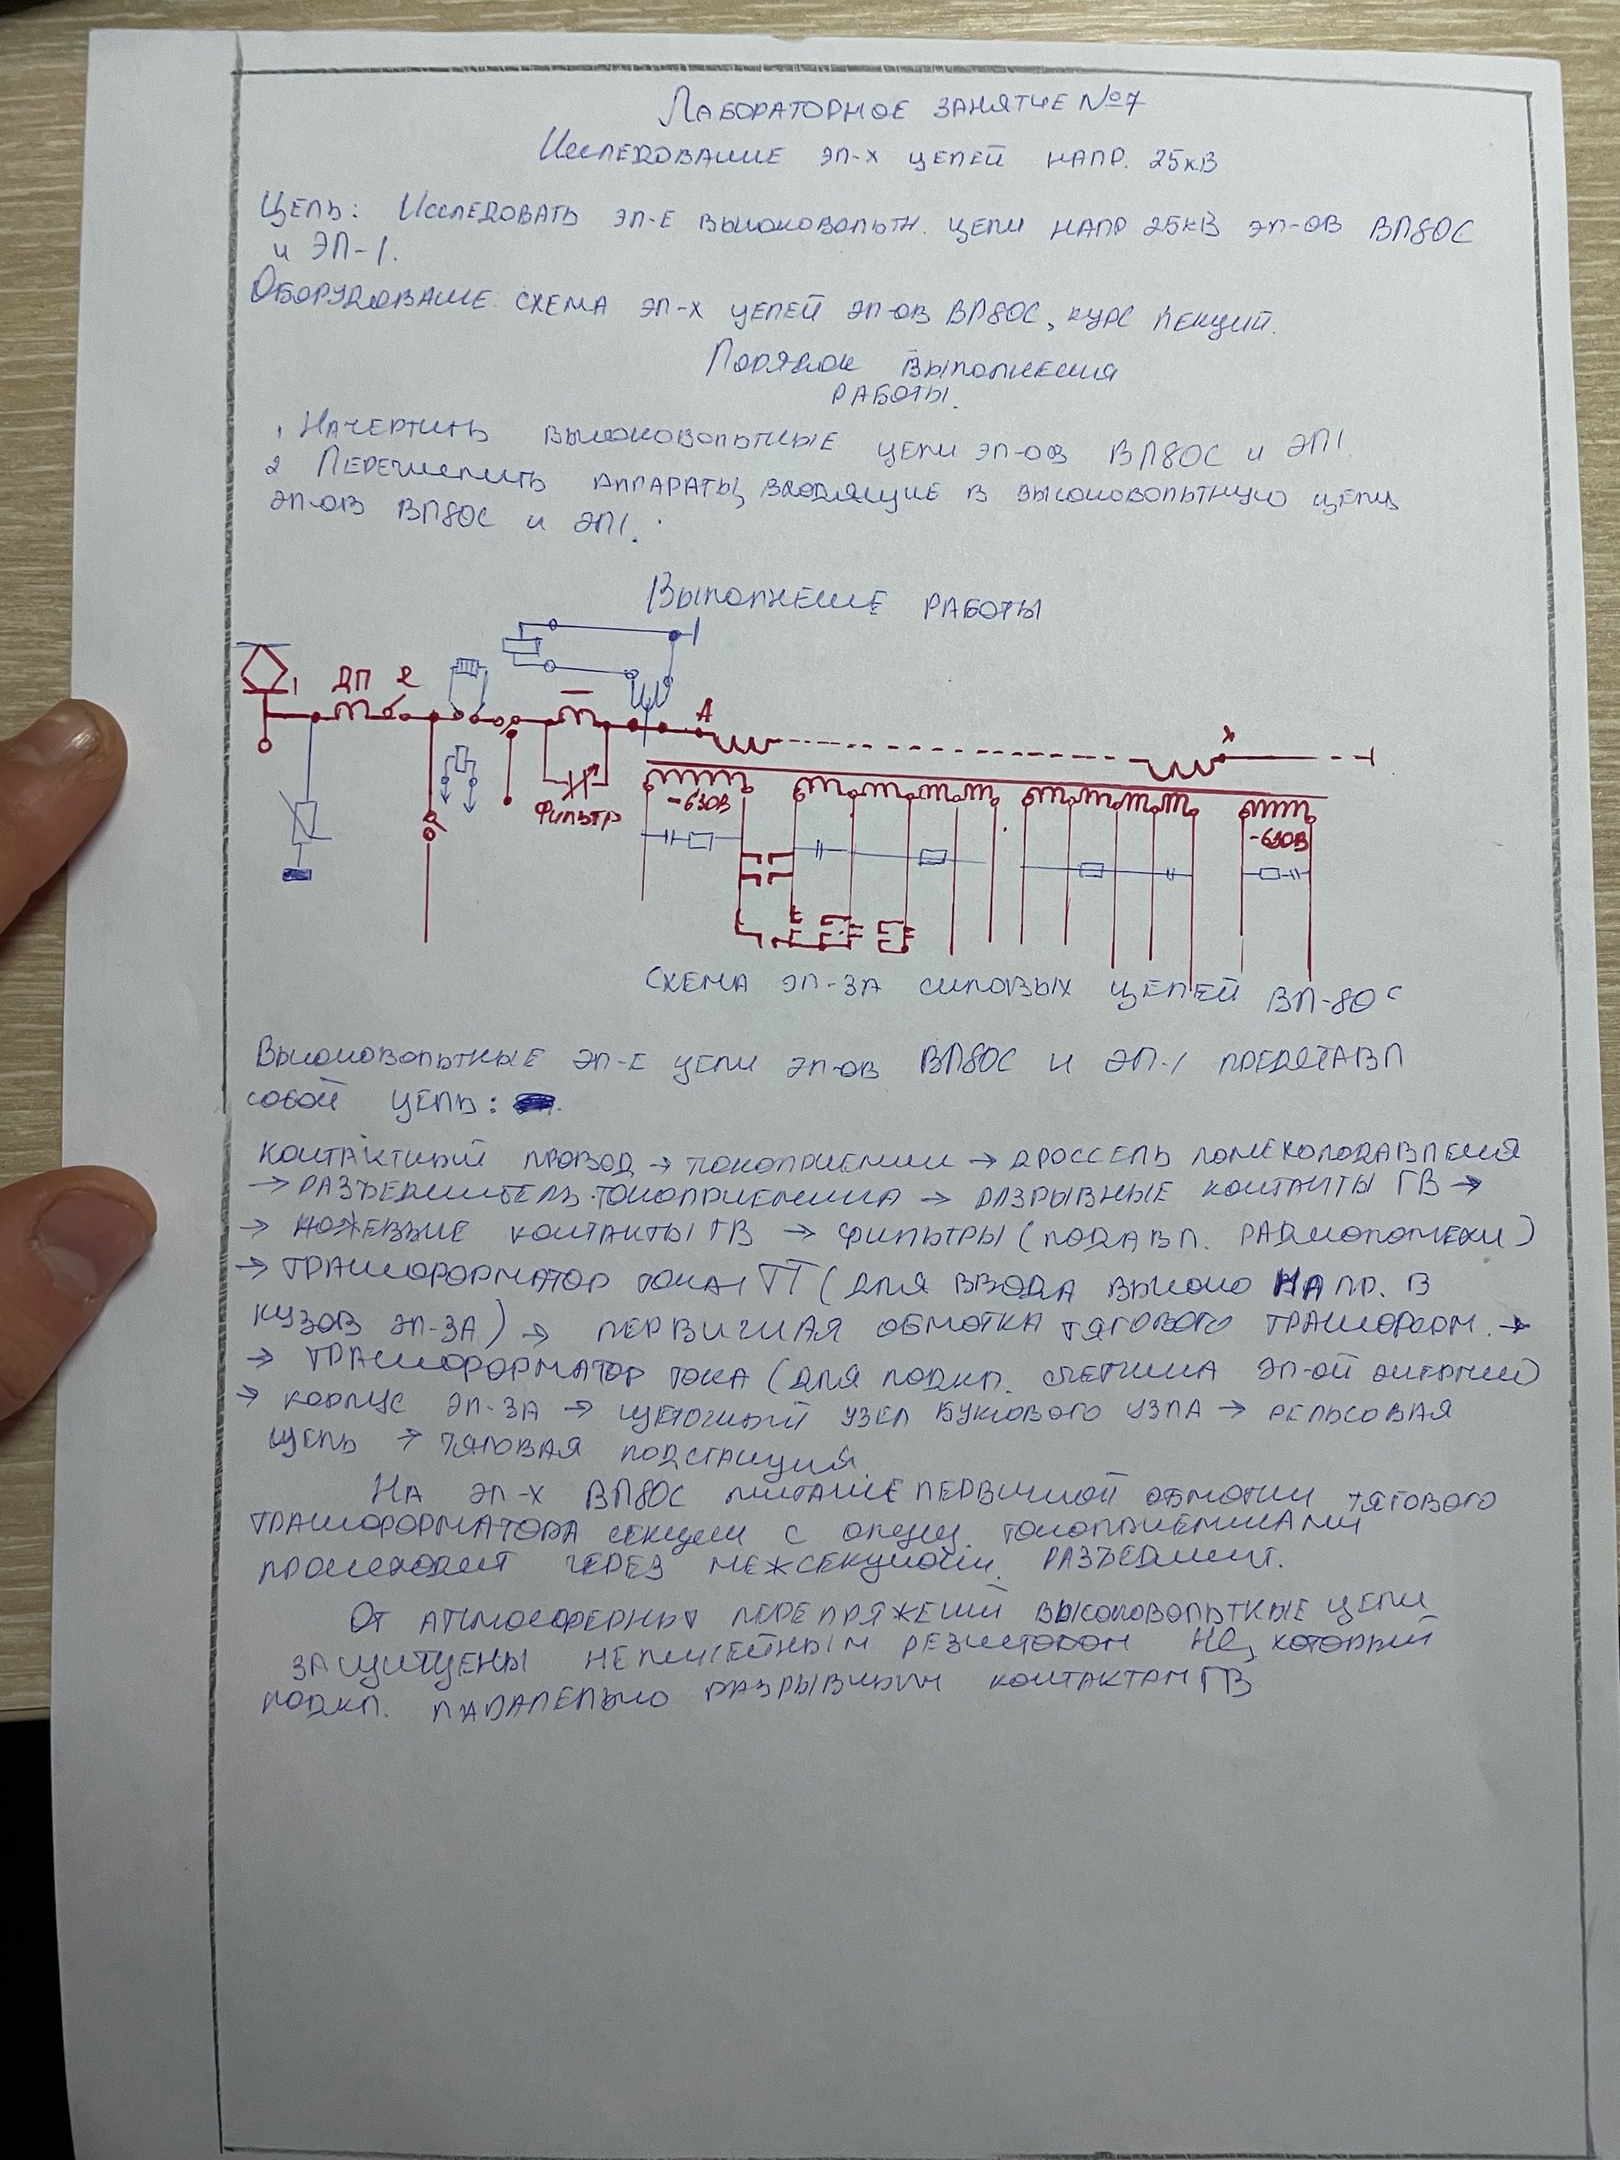 Лабораторное занятие №7
Исследование эл-х цепей напр. 25кВ
Цель: Исследовать эл-е высоковольтн. цепи напр 25кВ эл-ов ВЛ80С
и ЭП-1.
Оборудование: схема эл-х цепей эл-ов ВЛ80С, курс лекций.
Порядок выполнения
работы.
1 Начертить высоковольтные цепи эл-ов ВЛ80С и ЭП1.
2 Перечислить аппараты, входящие в высоковольтную цепь
эл-ов ВЛ80С и ЭП1.
Выполнение работы
1 ДП 2
А х
Фильтр ~630В ~630В
Схема эл-за силовых цепей ВЛ-80С
Высоковольтные эл-е цепи эл-ов ВЛ80С и ЭП-1 представл
собой цепь:
контактный провод → токоприемник → дроссель помехоподавления
→ разъединитель токоприемника → разрывные контакты ГВ →
→ ножевые контакты ГВ → фильтры (подавл. радиопомехи)
→ трансформатор тока 1ТТ (для ввода высоко напр. в
кузов эл-за) → первичная обмотка тягового трансформ. →
→ трансформатор тока (для подкл. счетчика эл-ой энергии)
→ корпус эл-за → щеточный узел буксового узла → рельсовая
цепь → тяговая подстанция.
На эл-х ВЛ80С питание первичной обмотки тягового
трансформатора секции с опущ. токоприемниками
происходит через межсекционн. разъединит.
От атмосферных перепряжений высоковольтные цепи
защищены нелинейным резистором НС, который
подкл. паралельно разрывным контактам ГВ